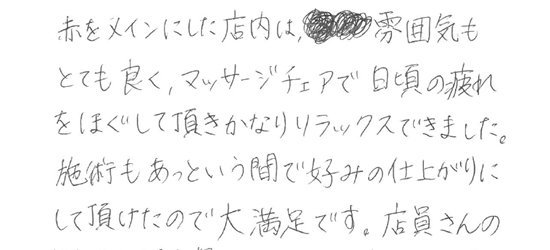 赤をメインにした店内は、雰囲気も
とても良く、マッサージチェアで日頃の疲れ
をほぐして頂きかなりリラックスできました。
施術もあっという間で好みの仕上がりに
して頂けたので大満足です。店員さんの